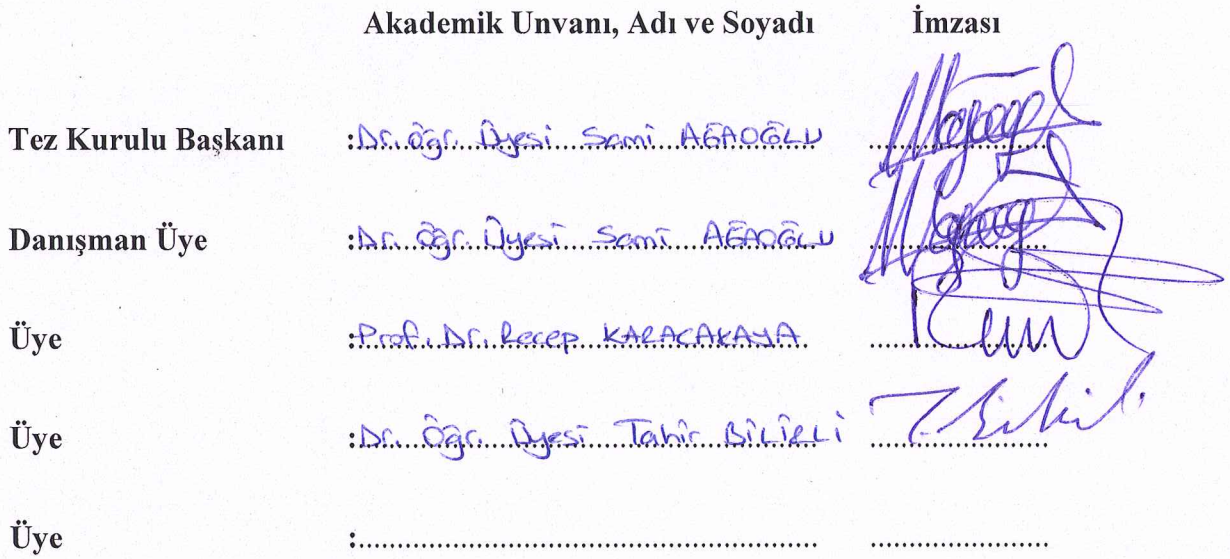 Akademik Unvanı, Adı ve Soyadı İmzası
Tez Kurulu Başkanı :Dr. Öğr. Üyesi Sami AĞAOĞLU
Danışman Üye :Dr. Öğr. Üyesi Sami AĞAOĞLU
Üye :Prof. Dr. Recep KARACAKAYA
Üye :Dr. Öğr. Üyesi Tahir BİLİRLİ
Üye :